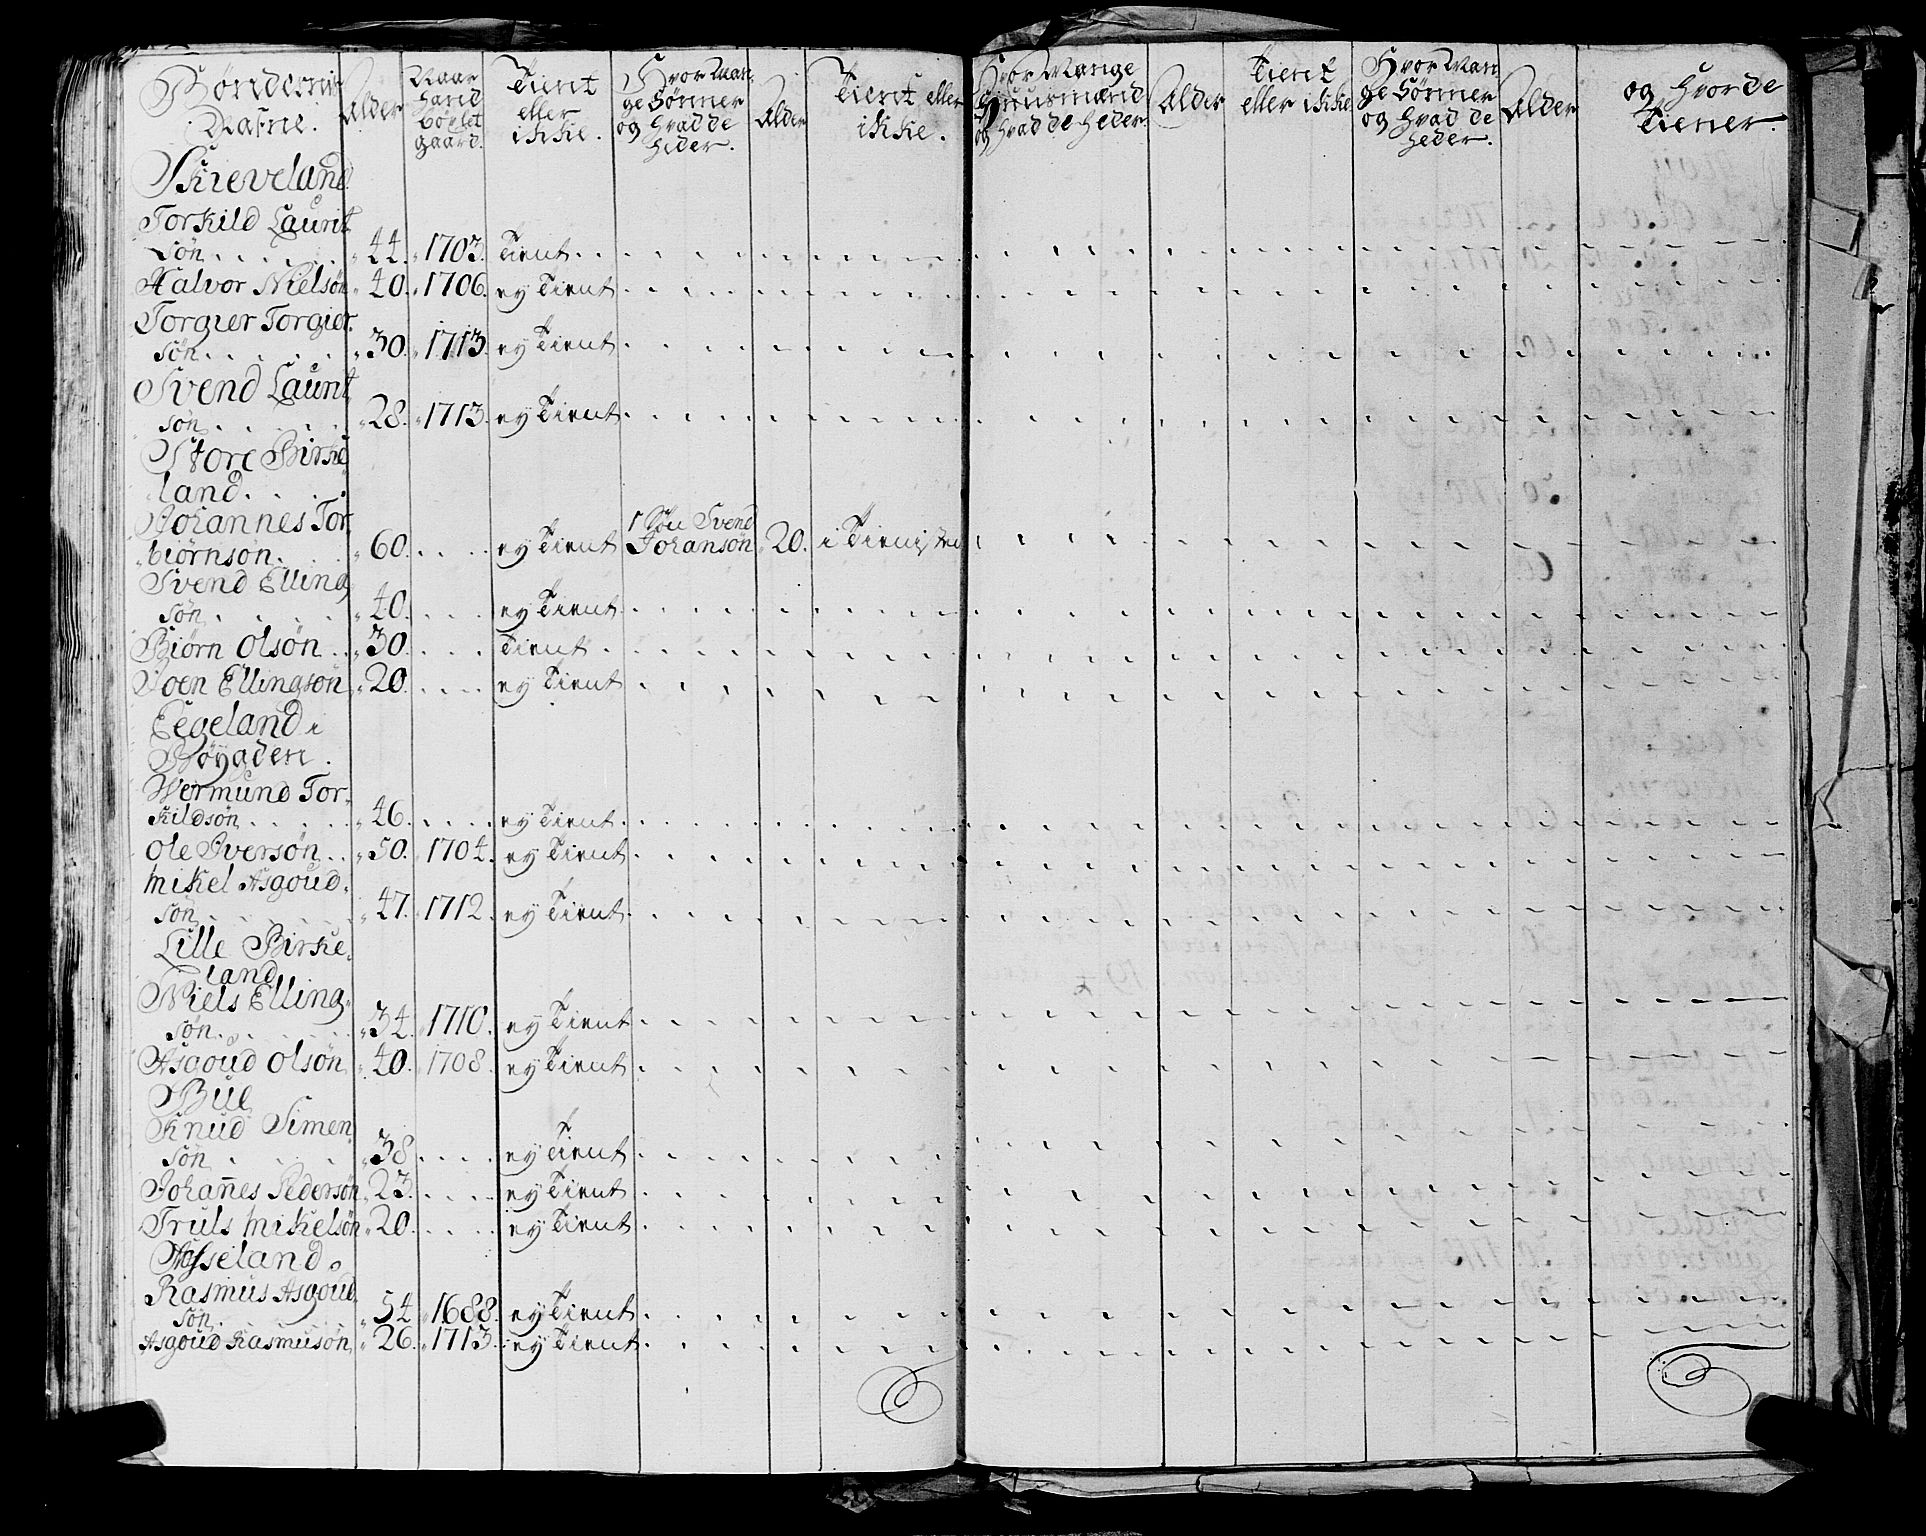 Bøndernis Nafne. Alder Naar hand Boxlet gaard. Tient eller ikke. Hvor Man- ge Sønner og Hvad de Heder. Alder Tient eller ikke. Hvor Mange Huusmænd og Hvad de Heder Alder Tient eller ikke Hvor Man ge Sønner og Hvad de Heder. Alder og Hvor de Tiener.
Skieveland
Torkild Laurit
Søn . . . . 44. 1703. Tient
Halvor Nielsøn 40. 1706. ey Tient
Torgier Torgier
søn . . . . 30. 1713. ey Tient
Svend Laurit
søn . . . . 28. 1713. ey Tient
Store Birke
land . . .
Johannes Tor
biørnsøn. 60. . . . ey Tient 1 Søn Svend Johansøn 20. i Tienisten
Svend Elling
søn . . . . 40. . . . ey Tient
Biørn Olsøn . . 30. . . . Tient
Joen Ellingsøn 20. . . . ey Tient
Eegeland i
Bøygden.
Wermund Tor-
kildsøn . . . 46. . . . ey Tient
Ole Iversøn . . 50. 1704. ey Tient
Mikel Asgoud-
søn . . . . 47. 1712. ey Tient
Lille Birke-
land
Niels Elling-
søn . . . . 34. 1710. ey Tient
Asgoud Olsøn 40. 1708. ey Tient
Bue
Knud Simen
søn . . . . 38 . . . ey Tient
Johan̄es Pedersøn 23. . . . ey Tient
Truls Mikelsøn 20. . . . ey Tient
Asseland.
Rasmus Asgoud-
søn. 54. 1688. ey Tient
Asgoud Rasmusøn 26. 1713. ey Tient